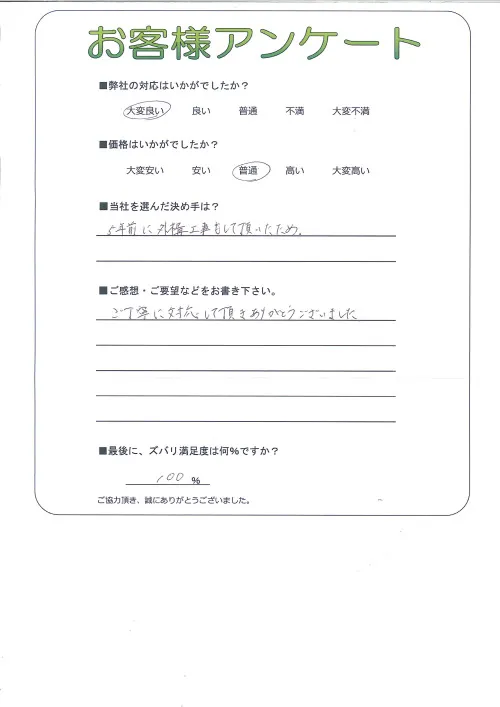 お客様アンケート
■弊社の対応はいかがでしたか？
大変良い 良い 普通 不満 大変不満
■価格はいかがでしたか？
大変安い 安い 普通 高い 大変高い
■当社を選んだ決め手は？
5年前に外構工事をして頂いたため。
■ご感想・ご要望などをお書き下さい。
ご丁寧に対応して頂きありがとうございました
■最後に、ズバリ満足度は何%ですか？
100 %
ご協力頂き、誠にありがとうございました。